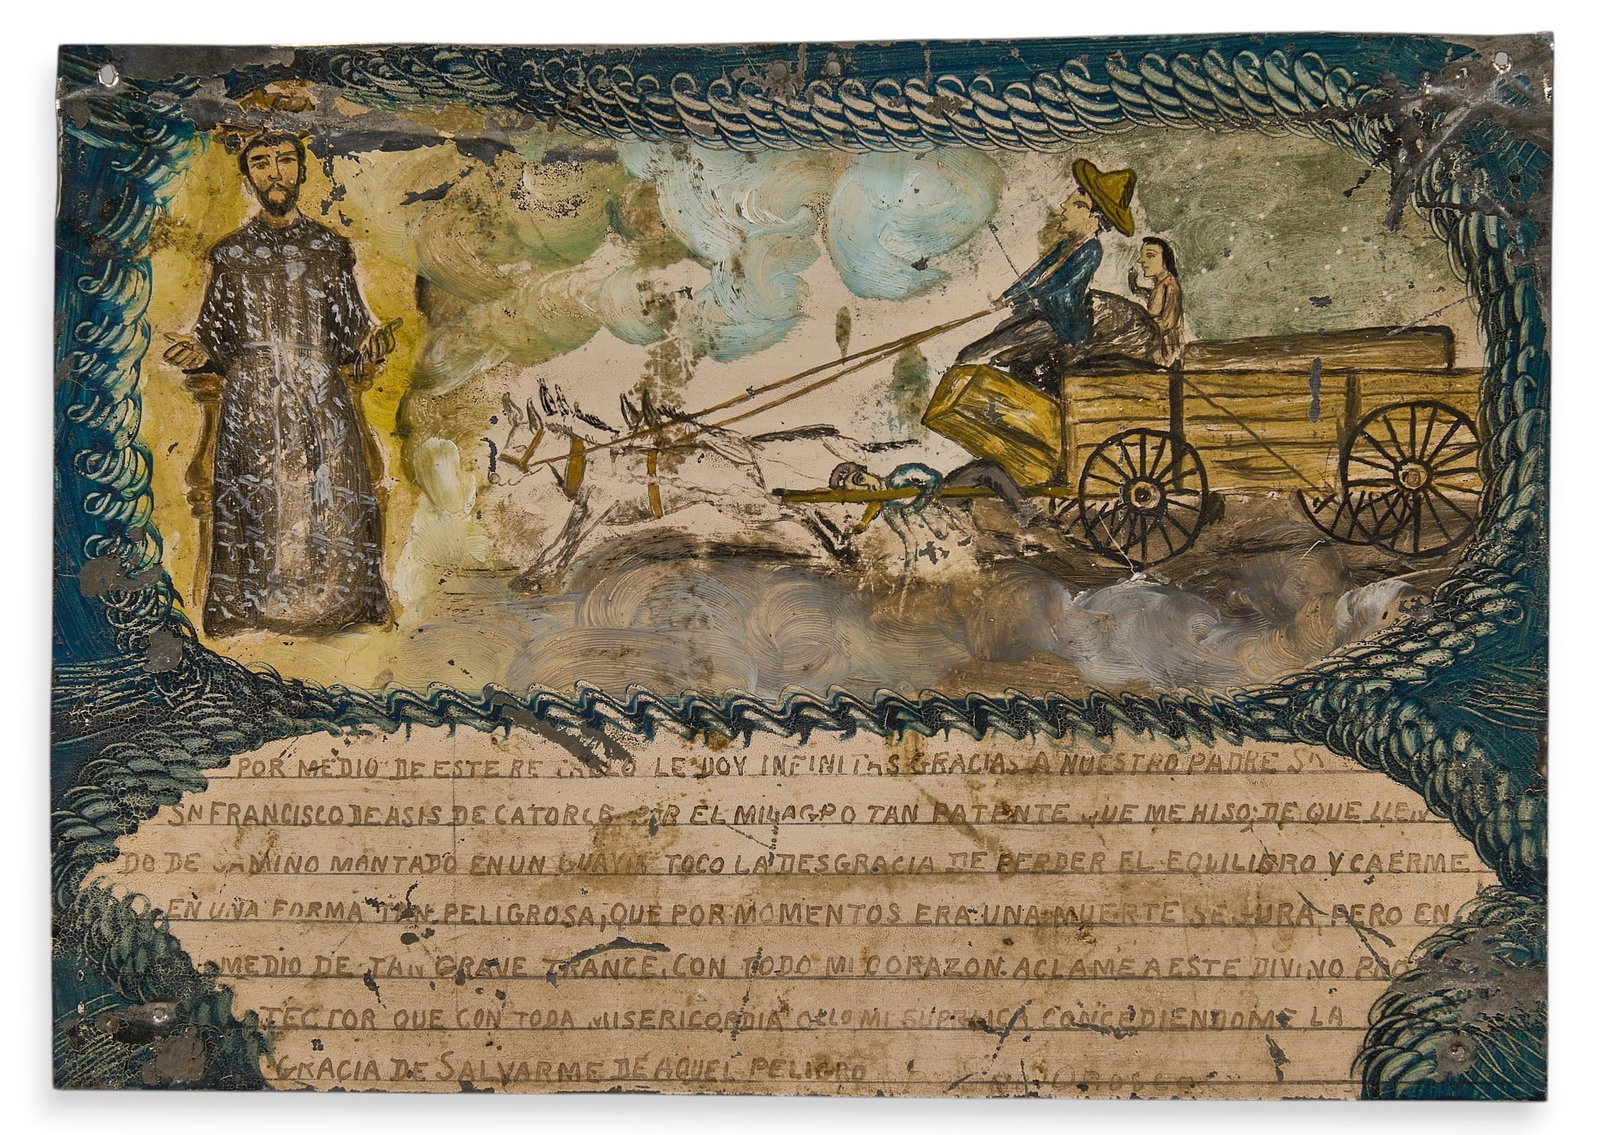 POR MEDIO DE ESTE RETABLO LE DOY INFINITAS GRACIAS A NUESTRO PADRE Sr
SN FRANCISCO DE ASIS DE CATORCE POR EL MILAGRO TAN PATENTE QUE ME HISO; DE QUE LLEN
DO DE CAMINO MONTADO EN UN GUAYIN TOCO LA DESGRACIA DE PERDER EL EQUILIBRO Y CAERME
EN UNA FORMA TAN PELIGROSA, QUE POR MOMENTOS ERA UNA MUERTE SEGURA, PERO EN
MEDIO DE TAN GRAVE TRANCE, CON TODO MI CORAZON ACLAME A ESTE DIVINO PRO
TECTOR QUE CON TODA MISERICORDIA OLLO MI SUPPLICA CONCEDIENDOME LA
GRACIA DE SALVARME DE AQUEL PELIGRO